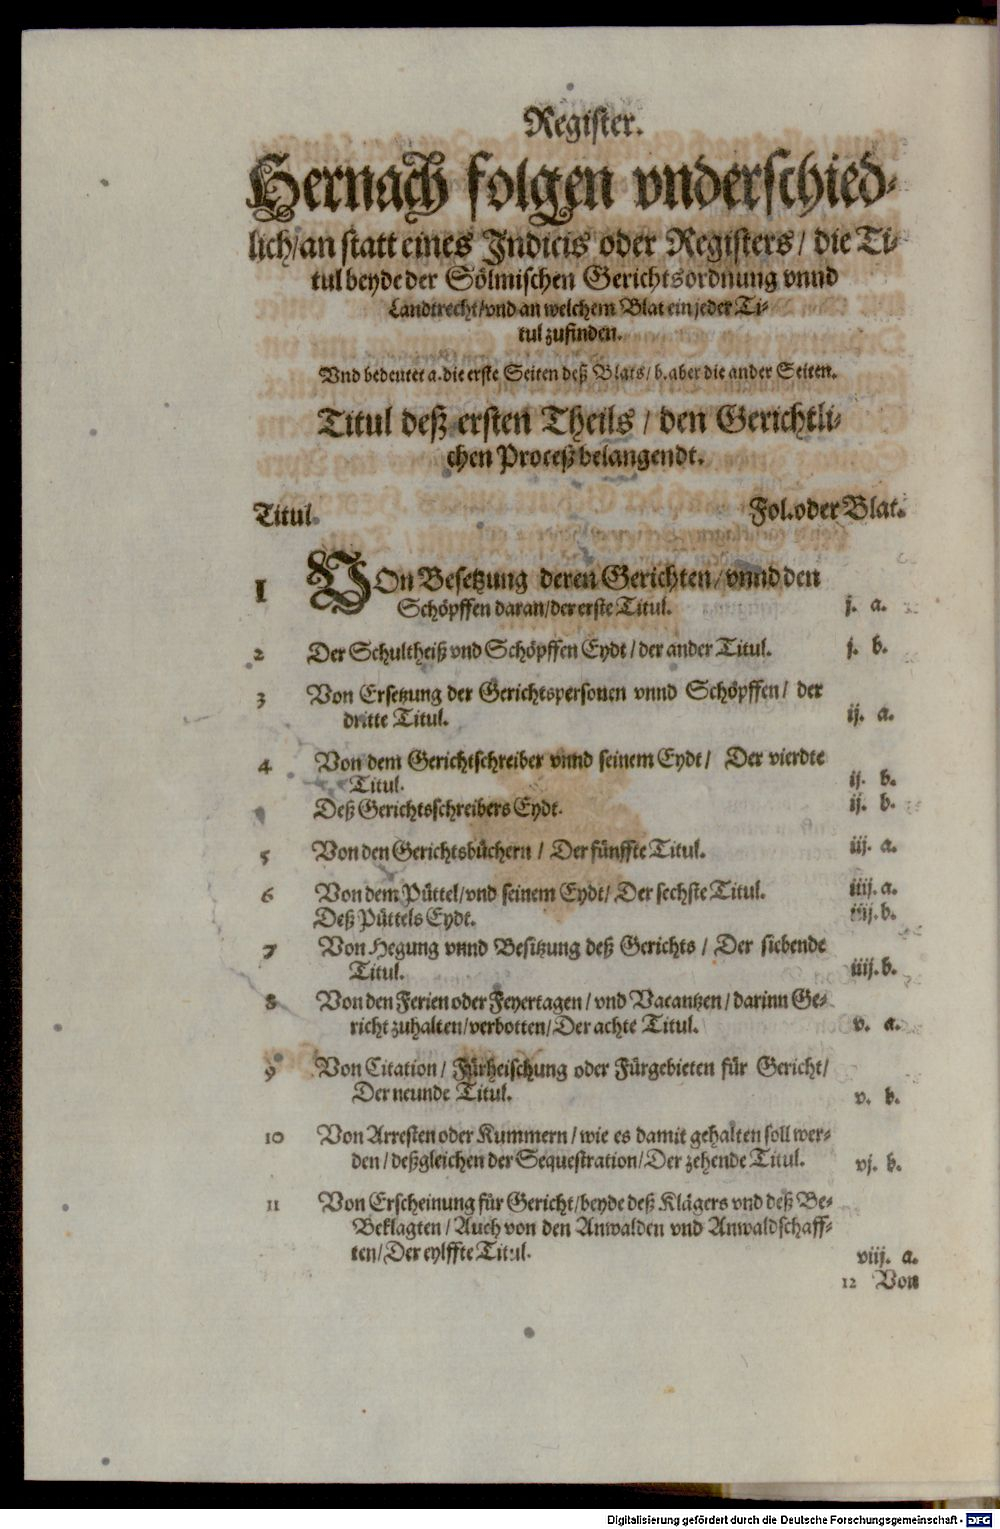 Register.
Hernach folgen vnderschied-
lich/ an statt eines Indicis oder Registers/ die Ti-
tul beyde der Sölmischen Gerichtsordnung vnnd
Landtrecht/ vnd an welchem Blat ein jeder Ti-
tul zufinden.
Vnd bedeutet a. die erste Seiten deß Blats/ b. aber die ander Seiten.
Titul deß ersten Theils/ den Gerichtli-
chen Proceß belangendt.
Titul. Fol. oder Blat.
1 VOn Besetzung deren Gerichten/ vnnd den
Schöpffen daran/ der erste Titul. j. a.
2 Der Schultheiß vnd Schöpffen Eydt/ der ander Titul. j. b.
3 Von Ersetzung der Gerichtspersonen vnnd Schöpffen/ der
dritte Titul. ij. a.
4 Von dem Gerichtschreiber vnnd seinem Eydt/ Der vierdte
Titul. ij. b.
Deß Gerichtsschreibers Eydt. ij. b.
5 Von den Gerichtsbüchern/ Der fünffte Titul. iij. a.
6 Von dem Püttel/ vnd seinem Eydt/ Der sechste Titul. iiij. a.
Deß Püttels Eydt. iiij. b.
7 Von Hegung vnnd Besitzung deß Gerichts/ Der siebende
Titul. iiij. b.
8 Von den Ferien oder Feyertagen/ vnd Vacantzen/ darinn Ge-
richt zuhalten/ verbotten/ Der achte Titul. v. a.
9 Von Citation/ Fürheischung oder Fürgebieten für Gericht/
Der neunde Titul. v. b.
10 Von Arresten oder Kummern/ wie es damit gehalten soll wer-
den/ deßgleichen der Sequestration/ Der zehende Titul. vj. b.
11 Von Erscheinung für Gericht/ beyde deß Klägers vnd deß Be-
Beklagten/ Auch von den Anwalden vnd Anwaldschaff-
ten/ Der eylffte Titul. viij. a.
12 Von
Digitalisierung gefördert durch die Deutsche Forschungsgemeinschaft - DFG